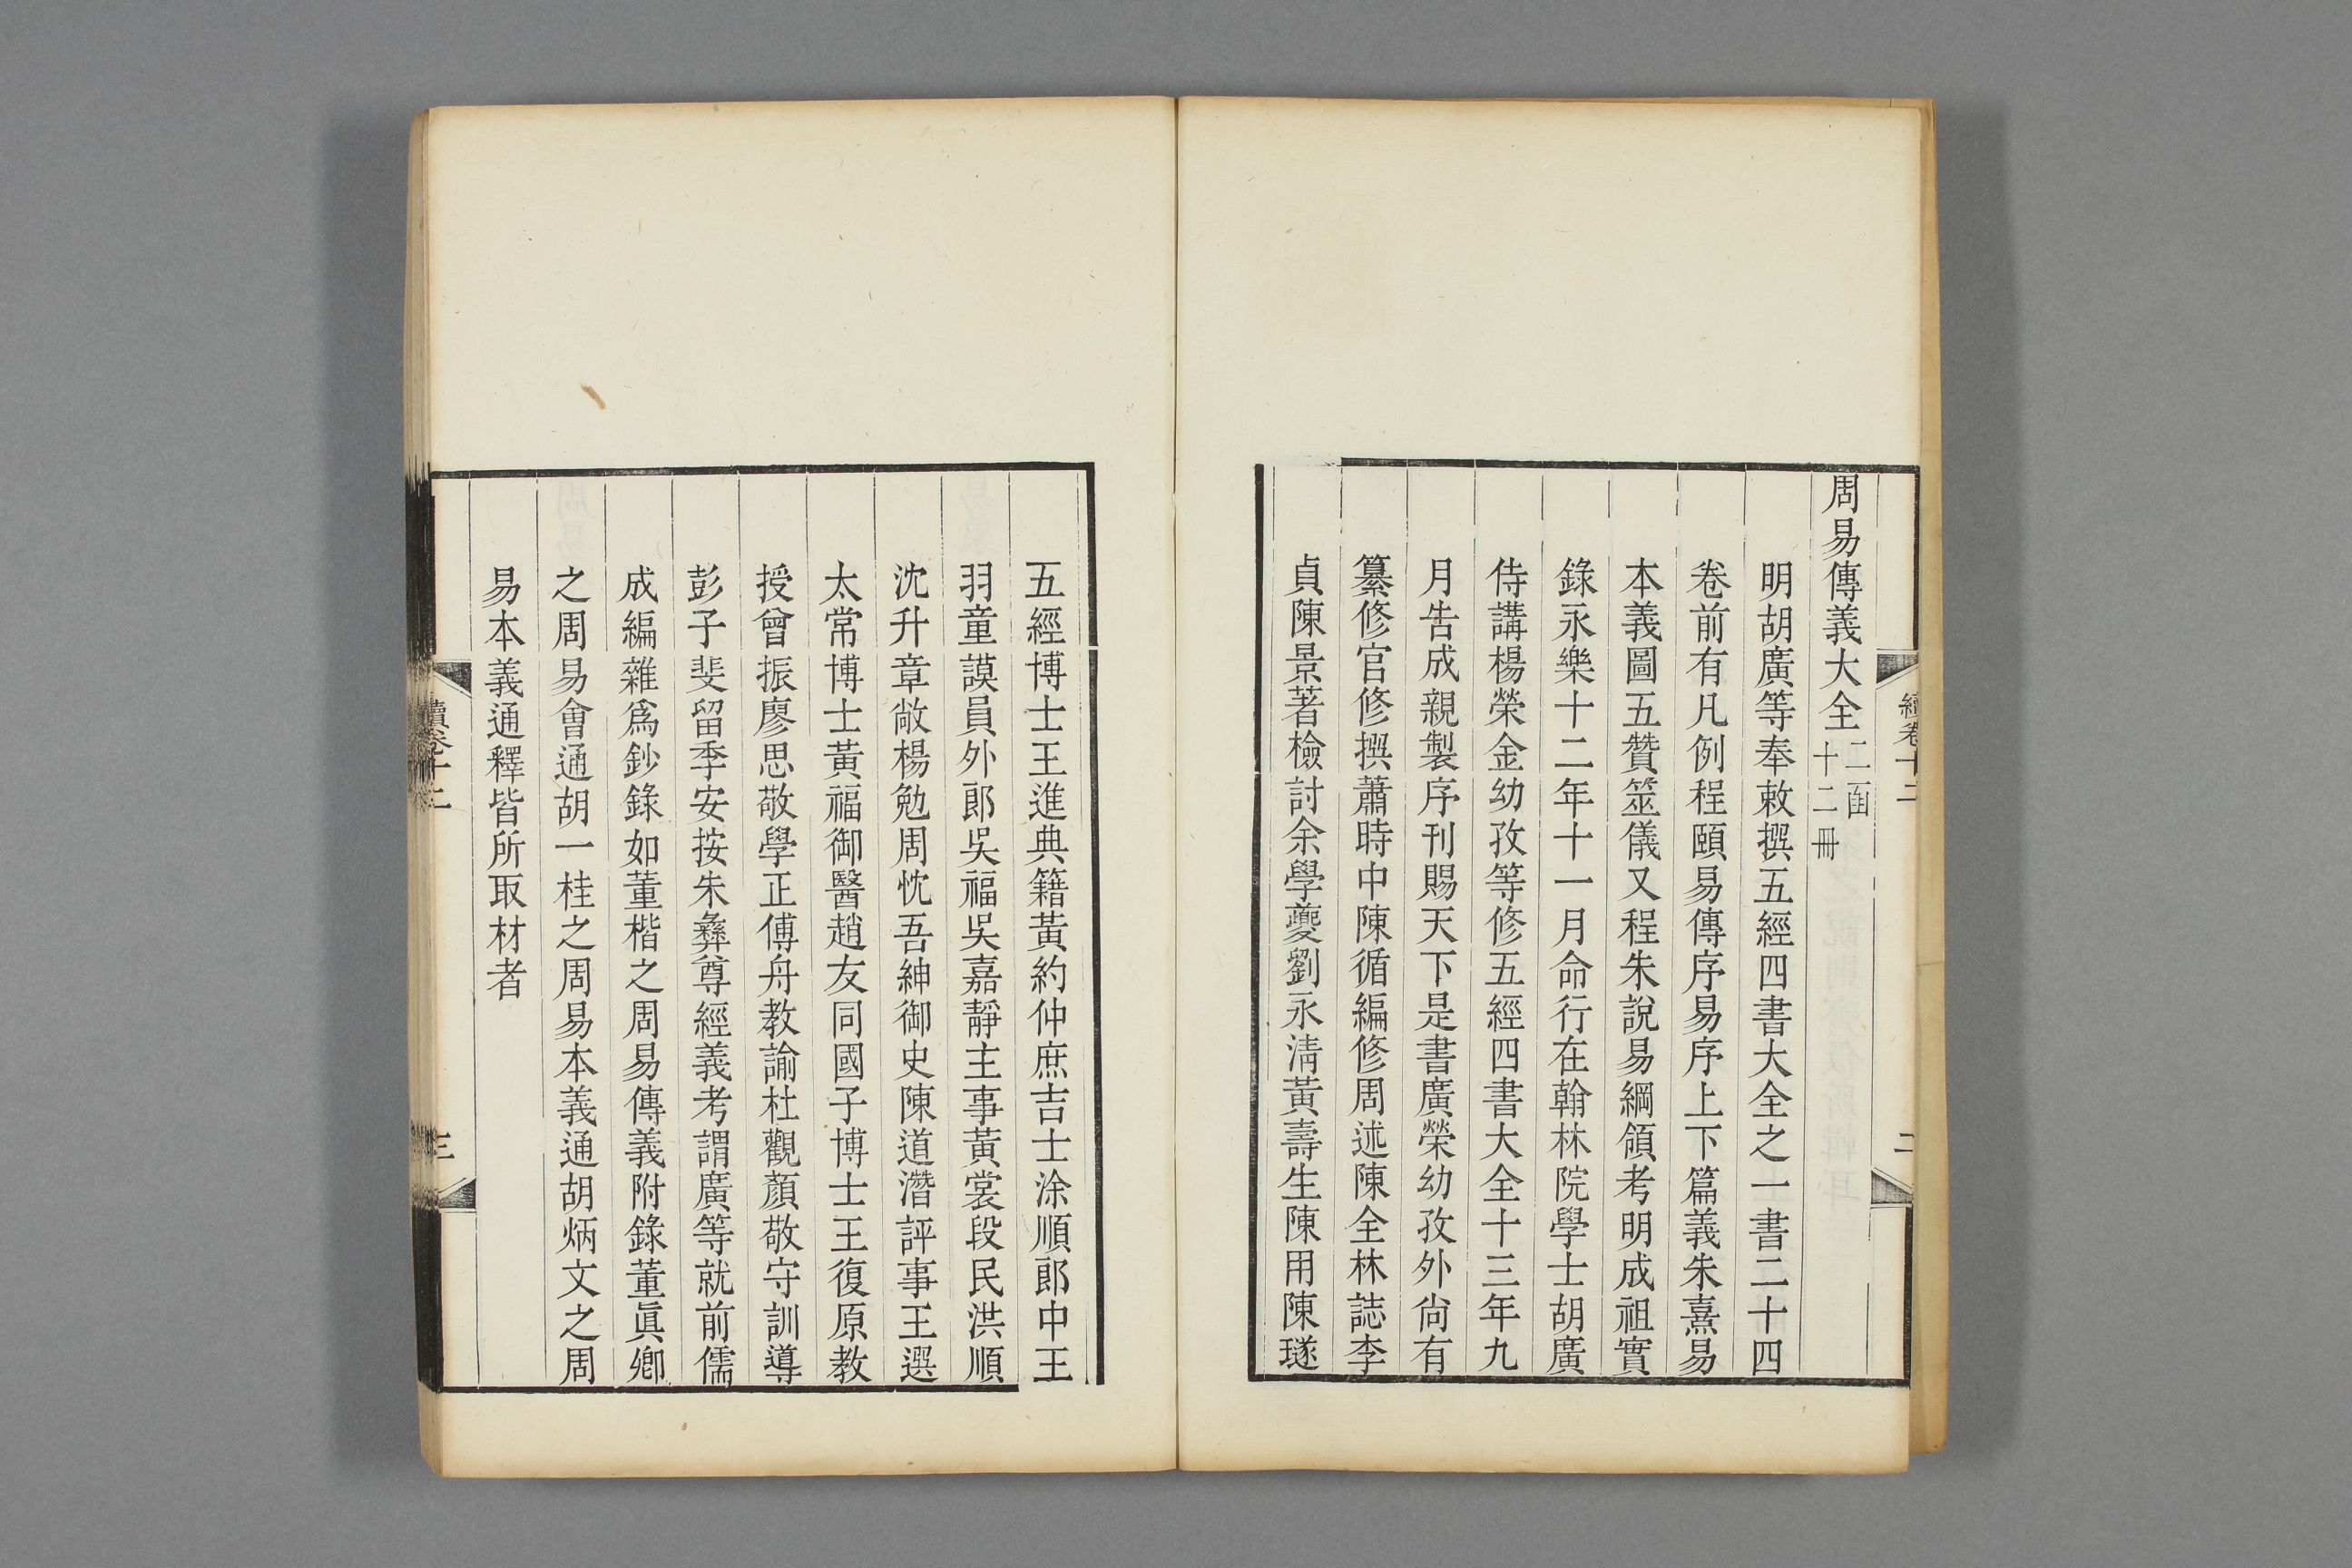 續卷十二
二
周易傳義大全二函十二冊
明胡廣等奉敕撰五經四書大全之一書二十四
卷前有凡例程頤易傳序易序上下篇義朱熹易
本義圖五贊筮儀又程朱說易綱領考明成祖實
錄永樂十二年十一月命行在翰林院學士胡廣
侍講楊榮金幼孜等修五經四書大全十三年九
月告成親製序刊賜天下是書廣榮幼孜外尙有
纂修官修撰蕭時中陳循編修周述陳全林誌李
貞陳景著檢討余學夔劉永淸黃壽生陳用陳璲
五經博士王進典籍黃約仲庶吉士涂順郎中王
羽童謨員外郎吳福吳嘉靜主事黃裳段民洪順
沈升章敞楊勉周忱吾紳御史陳道潛評事王選
太常博士黃福御醫趙友同國子博士王復原教
授曾振廖思敬學正傅舟教諭杜觀顏敬守訓導
彭子斐留季安按朱彝尊經義考謂廣等就前儒
成編雜爲鈔錄如董楷之周易傳義附錄董眞卿
之周易會通胡一桂之周易本義通胡炳文之周
易本義通釋皆所取材者
續卷十二
三